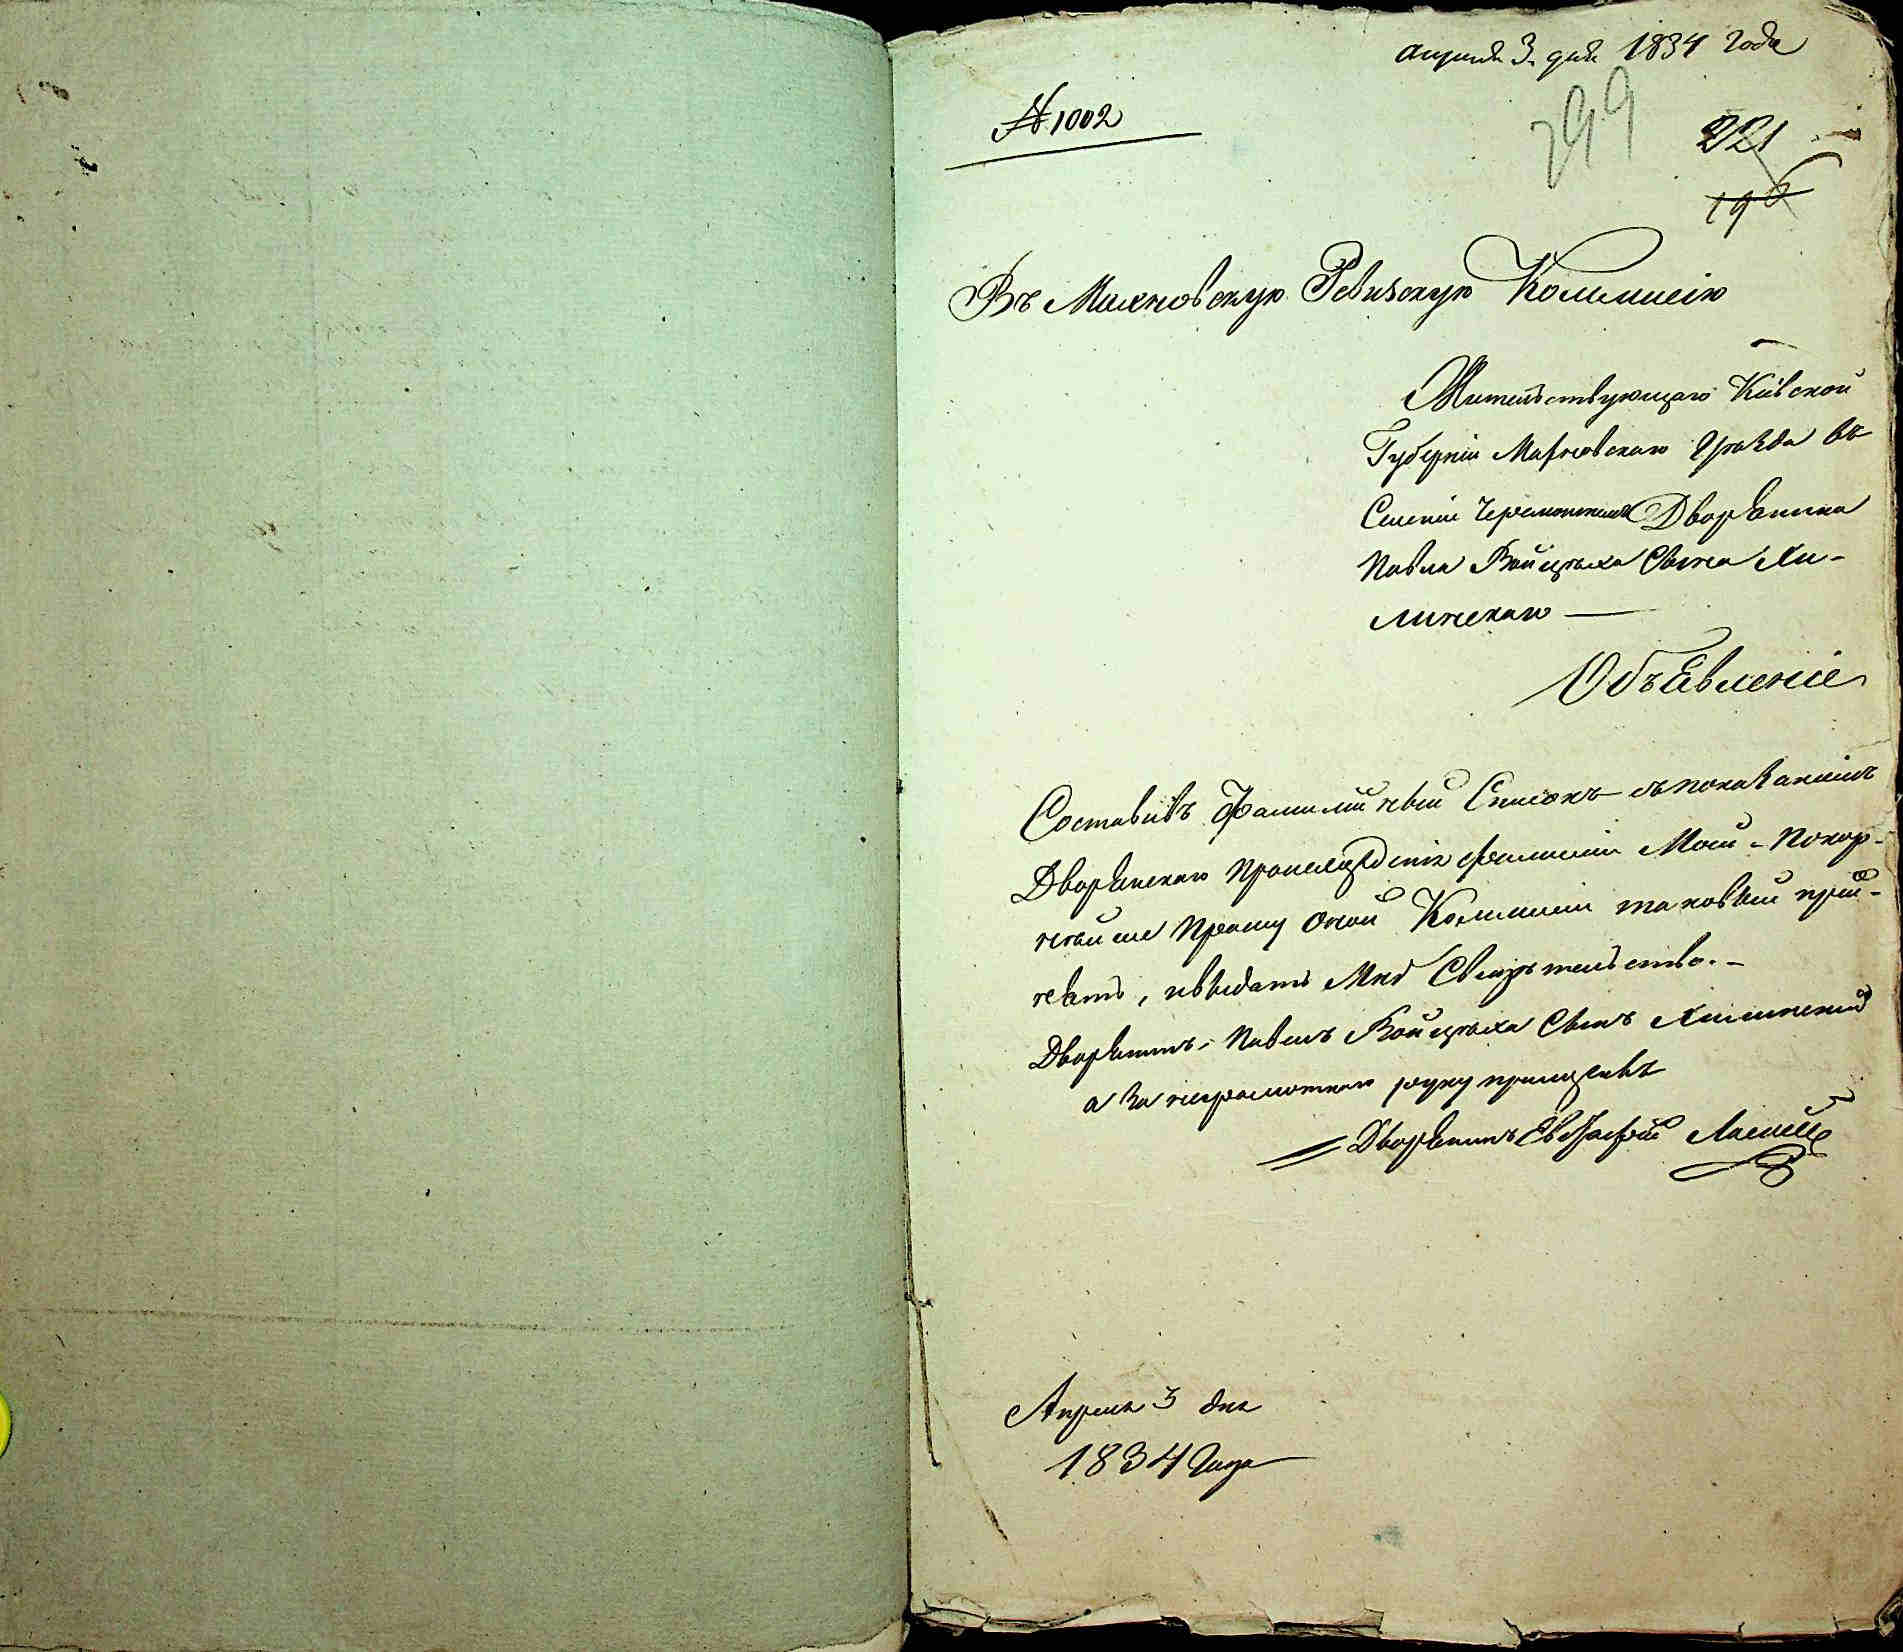 апреля 3. дня 1834 года
№ 1002
299
221
196
Въ Махновскую Ревизскую Коммисію
Жительствующаго Кіевской
Губерніи Махновскаго Уѣзда въ
Селеніи Дворянина
Павла Войцѣха Сына Хи-
линскаго —
Объявленіе
Составивъ Фамилійный Списокъ съ показаніемъ
Дворянскаго Происхожденія фамиліи Моей - Покор-
нѣйше Прошу Оной Коммисіи таковый прій-
нять, и выдать Мнѣ Свидѣтельство. -
Дворянинъ, Павелъ Войцѣха Сынъ Хилинскій
а за неграмотнаго руку приложилъ
Дворянинъ
Апреля 3 дня
1834 Года